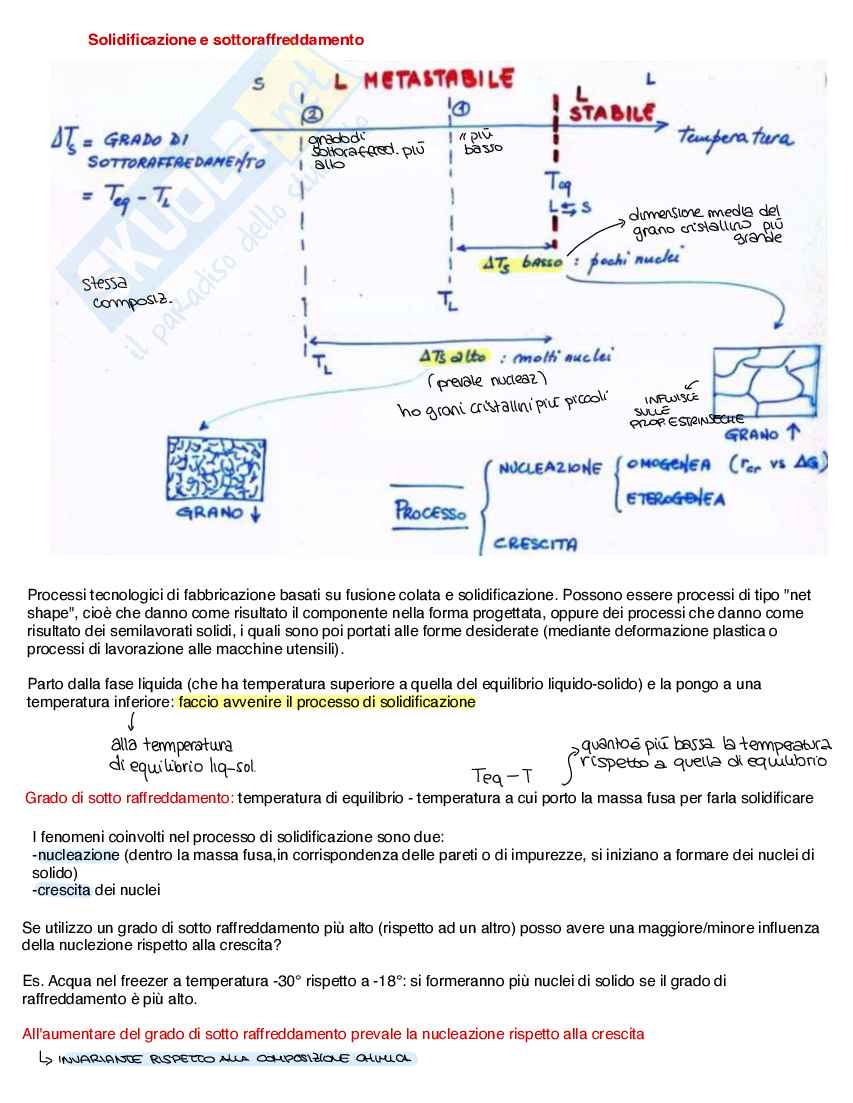 Solidificazione e sottoraffreddamento
S L METASTABILE L
② ① L STABILE
ΔTs = GRADO DI SOTTORAFFREDAMENTO
= Teq - TL
grado di
sottoraffred. più
alto
" più
basso
temperatura
Teq
L ⇆ S
dimensione media del
grano cristallino più
grande
ΔTs basso : pochi nuclei
stessa
composiz.
TL
TL
ΔTs alto : molti nuclei
(prevale nucleaz)
ho grani cristallini più piccoli
INFLUISCE
SULLE
PROP. ESTRINSECHE
GRANO ↑
GRANO ↓
PROCESSO
NUCLEAZIONE
OMOGENEA (rcr vs ΔG)
ETEROGENEA
CRESCITA
SKUOLA.net
il paradiso dello studente
Processi tecnologici di fabbricazione basati su fusione colata e solidificazione. Possono essere processi di tipo "net
shape", cioè che danno come risultato il componente nella forma progettata, oppure dei processi che danno come
risultato dei semilavorati solidi, i quali sono poi portati alle forme desiderate (mediante deformazione plastica o
processi di lavorazione alle macchine utensili).
Parto dalla fase liquida (che ha temperatura superiore a quella del equilibrio liquido-solido) e la pongo a una
temperatura inferiore: faccio avvenire il processo di solidificazione
alla temperatura
di equilibrio liq-sol.
Teq - T
quanto è più bassa la temperatura
rispetto a quella di equilibrio
Grado di sotto raffreddamento: temperatura di equilibrio - temperatura a cui porto la massa fusa per farla solidificare
I fenomeni coinvolti nel processo di solidificazione sono due:
-nucleazione (dentro la massa fusa,in corrispondenza delle pareti o di impurezze, si iniziano a formare dei nuclei di
solido)
-crescita dei nuclei
Se utilizzo un grado di sotto raffreddamento più alto (rispetto ad un altro) posso avere una maggiore/minore influenza
della nuclezione rispetto alla crescita?
Es. Acqua nel freezer a temperatura -30° rispetto a -18°: si formeranno più nuclei di solido se il grado di
raffreddamento è più alto.
All'aumentare del grado di sotto raffreddamento prevale la nucleazione rispetto alla crescita
INVARIANTE RISPETTO ALLA COMPOSIZIONE CHIMICA